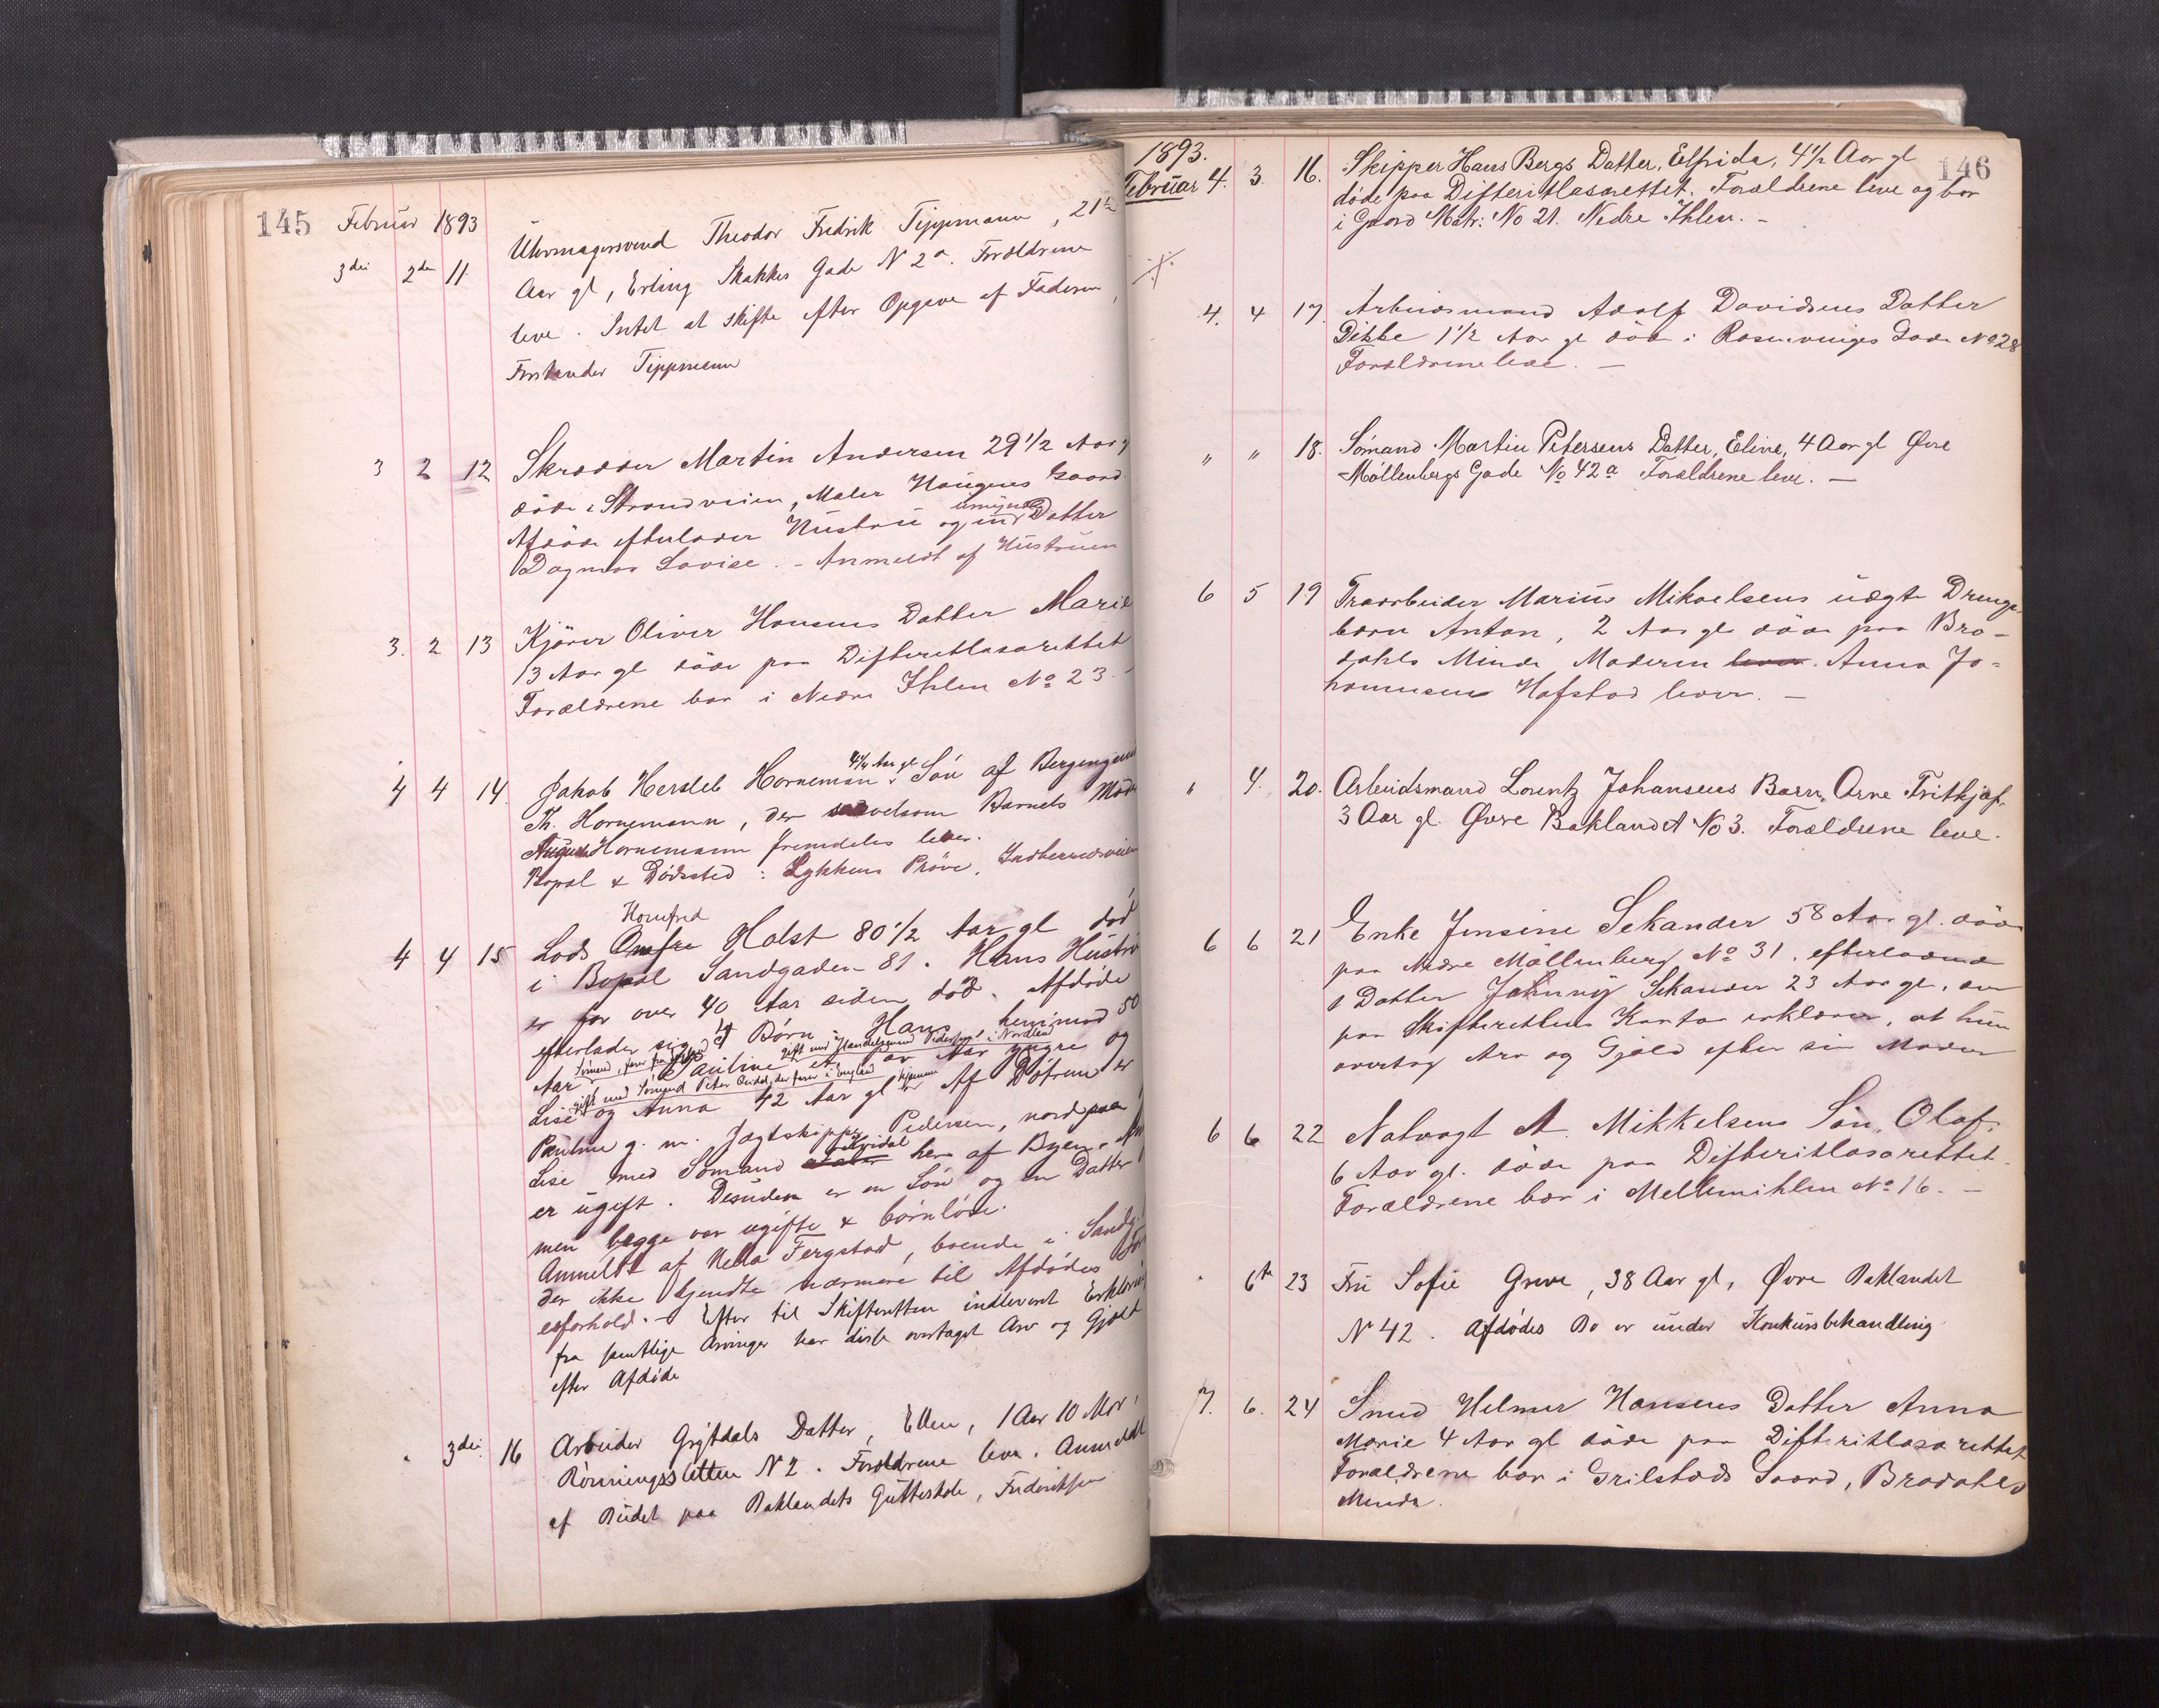 145 Februar 1893
3die 2den 11. Uhrmagersvend Theodor Fredrik Tippmann, 21½
Aar gl, Erling Skakkes Gade N 2a. Forældrene
leve. Intet at skifte efter Opgave af Faderen,
Forstander Tippmann
3 2 12 Skrædder Martin Andersen 29 1/2 Aar g
døde i Strandveien, Maler Haugens Gaard
Afdøde efterlader Hustru og en umyndig Datter
Dagmar Lovise. - Anmeldt af Hustruen
3. 2 13 Kjører Oliver Hansens Datter Marie
13 Aar gl døde paa Difteritlasarettet
Forældrene bor i Nedre Ihlen No 23. -
4 4 14. Jakob Hersleb Horneman 4¼ Aar gl Søn af Bergingeniør
Th. Hornemann, der saavelsom Barnets Mod
Hornemann fremdeles lever.
Bopæl & Dødssted: Lykkens Prøve, Indherredsveien
Homfred
4 4 15 Lods Omfre Holst 80 1/2 Aar gl død
i Bopæl Sandgaden 81. Hans Hustru
er for over 40 Aar siden død. Afdøde
efterlader sig 4 Børn Hans henimod 50
Aar Pauline et Par Aar yngre og
gift med Handelsmand Pedersen i Nordland
gift med Sømand Peter Qvidal, der farer i England
Lise og Anna 42 Aar gl hjemme Af Døtrene er
Pauline g. m. Jagtskipper Pedersen, nordpaa
Lise med Sømand Qvidal her af Byen. An
er ugift. Desuden er en Søn og en Datter
men begge var ugifte & børnløse.
Anmeldt af Hella Fergstad, boende i Sandg.
der ikke kjendte nærmere til Afdødes For
esforhold. - Efter til Skifteretten indleveret Erklæring
fra samtlige Arvinger har disse overtaget Arv og Gjæld
efter Afdøde
" 3die. 16 Arbeider Grytdals Datter, Ellen, 1 Aar 10 Mdr,
Rønningsletten N 2. Forældrene leve. Anmeldt
af Budet paa Baklandets Gutteskole, Frederiksen
1893. 146
Februar 4. 3. 16. Skipper Hans Bergs Datter, Elfrida, 4½ Aar gl
døde paa Difteritlasarettet. Forældrene leve og bor
i Gaard Matr: No 21. Nedre Ihlen. -
4. 4 17. Arbeidsmand Adolf Davidsens Datter
Dikke 1 1/2 Aar gl død i Rosenvinges Gade No 28
Forældrene leve. -
" " 18. Sømand Martin Petersens Datter, Eline, 4 Aar gl Øvre
Møllenbergs Gade No 42a Forældrene leve. -
6 5 19 Træarbeider Marius Mikaelsens uægte Drenge-
barn Anton, 2 Aar gl døde paa Bro-
dahls Minde Moderen lever. Anna Jo-
hannesen Hofstad lever. -
" 4. 20. Arbeidsmand Lorentz Johansens Barn, Arne Fritkjof.
3 Aar gl. Øvre Baklandet No 3. Forældrene leve.
6 6 21 Enke Jensine Sekander 58 Aar gl. døde
paa Nedre Møllenberg No 31. efterladende
1 Datter Johnny Sekander 23 Aar gl, der
paa Skifterettens Kontor erklærer, at hun
overtog Arv og Gjæld efter sin Moder
6 6 22 Natvagt A. Mikkelsens Søn, Olaf.
6 Aar gl. døde paa Difteritlasarettet.
Forældrene bor i Mellemihlen No 16. -
" 6te 23 Fru Sofie Greve, 38 Aar gl, Øvre Baklandet
N 42. Afdødes Bo er under Konkursbehandling
7. 6. 24 Smed Helmer Hansens Datter Anna
Marie 4 Aar gl døde paa Difteritlasarettet
Forældrene bor i Grilstads Gaard, Brodahls
Minde.